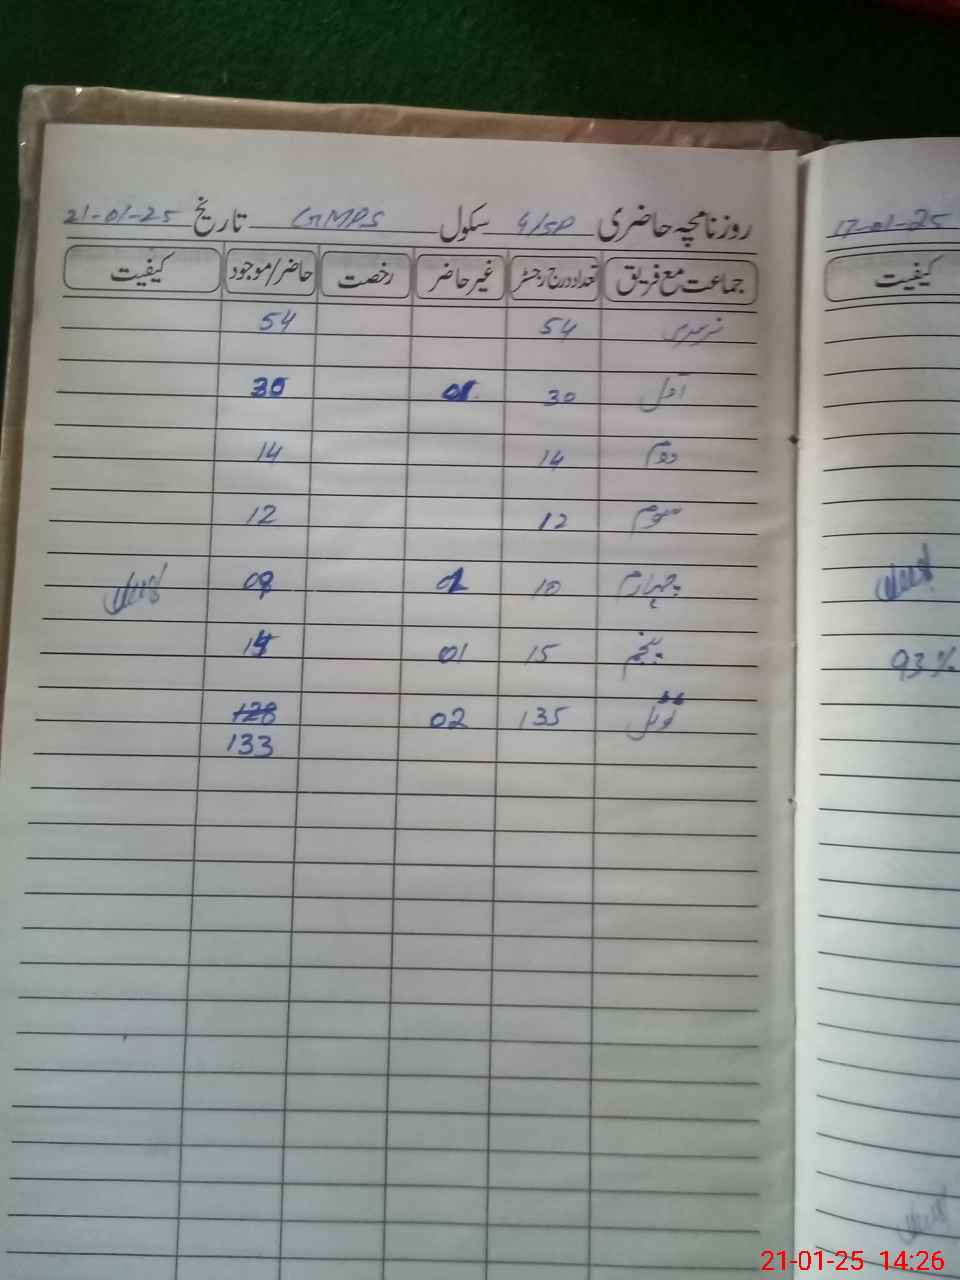 روزنامچہ حاضری 4/SP سکول GMPS تاریخ 21-01-25
جماعت مع فریق تعداد درج رجسٹر غیر حاضر رخصت حاضر/موجود کیفیت
نرسری 54 54
اول 30 01 30
دوم 14 14
سوم 12 12
چہارم 10 01 09
پنجم 15 01 14
ٹوٹل 135 02 128
133
17-01-25
کیفیت
93%
21-01-25 14:26